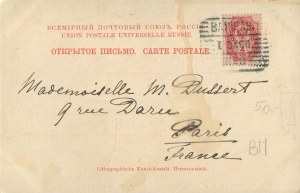 ВСЕМІРНЫЙ ПОЧТОВЫЙ СОЮЗЪ. РОССІЯ.
UNION POSTALE UNIVERSELLE. RUSSIE.
ОТКРЫТОЕ ПИСЬМО. CARTE POSTALE.
Mademoiselle M. Dussert
9 rue Daru
Paris
France
50.-
Lithographische Kunst-Anstalt